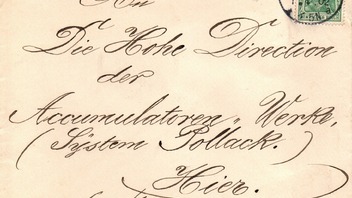 An
Die Hohe Direction
der
Accumulatoren „ Werke,
(System Pollack.)
Hier.